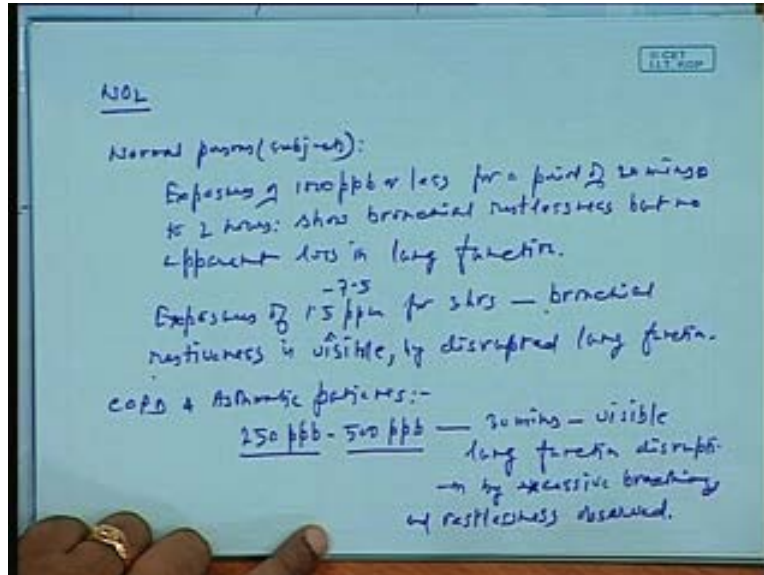 © CET
I.I.T. KGP
NO2
Normal persons (subjects):
Exposures of 1000 ppb or less for a period of 20 mins
to 2 hours: show bronchial restlessness but no
apparent loss in lung function.
-7.5
Exposures of 1.5 ppm for 3 hrs — bronchial
restiveness is visible, by disrupted lung function.
COPD & Asthmatic patients:-
250 ppb - 500 ppb — 30 mins — visible
lung function disrupti-
-on by excessive breathing
and restlessness observed.